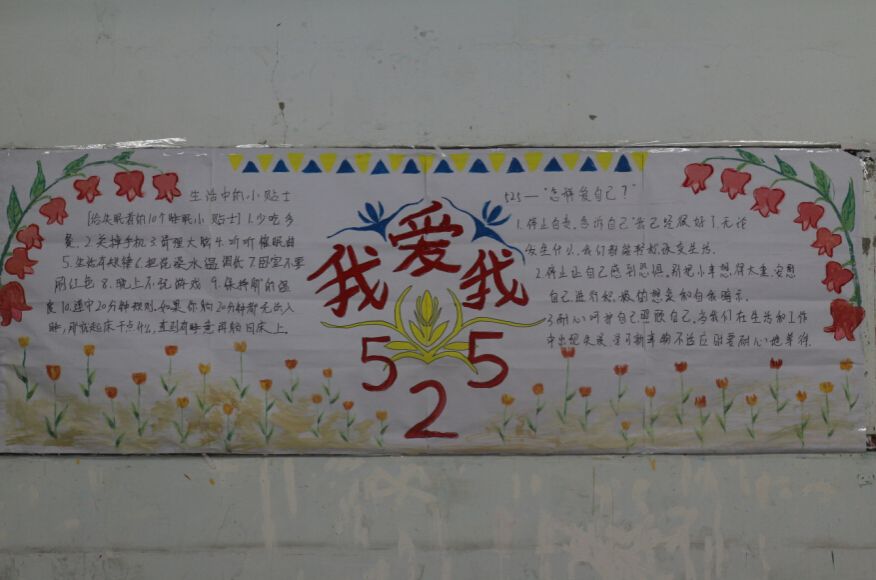 生活中的小贴士
[给失眠者的10个睡眠小贴士] 1.少吃多
餐.2.关掉手机 3.管理大脑 4.听听催眠曲
5.生活有规律 6.把洗澡水温调低 7.卧室不要
用红色 8.晚上不玩游戏 9.保持卧的温
度 10.遵守20分钟规则.如果你躺20分钟都无法入
睡,那就起床干点什么,直到有睡意再躺回床上.
我爱我
525
525—"怎样爱自己?"
1.停止自责,告诉自己"我已经很好了,无论
发生什么,我们都能
2.停止让自己感到恐惧,别把小事想得太重.
自己进行积极的想象和自我暗示.
3.耐心呵护自己照顾自己,当我们在生活和工作
中出现失误,学习新事物不适应